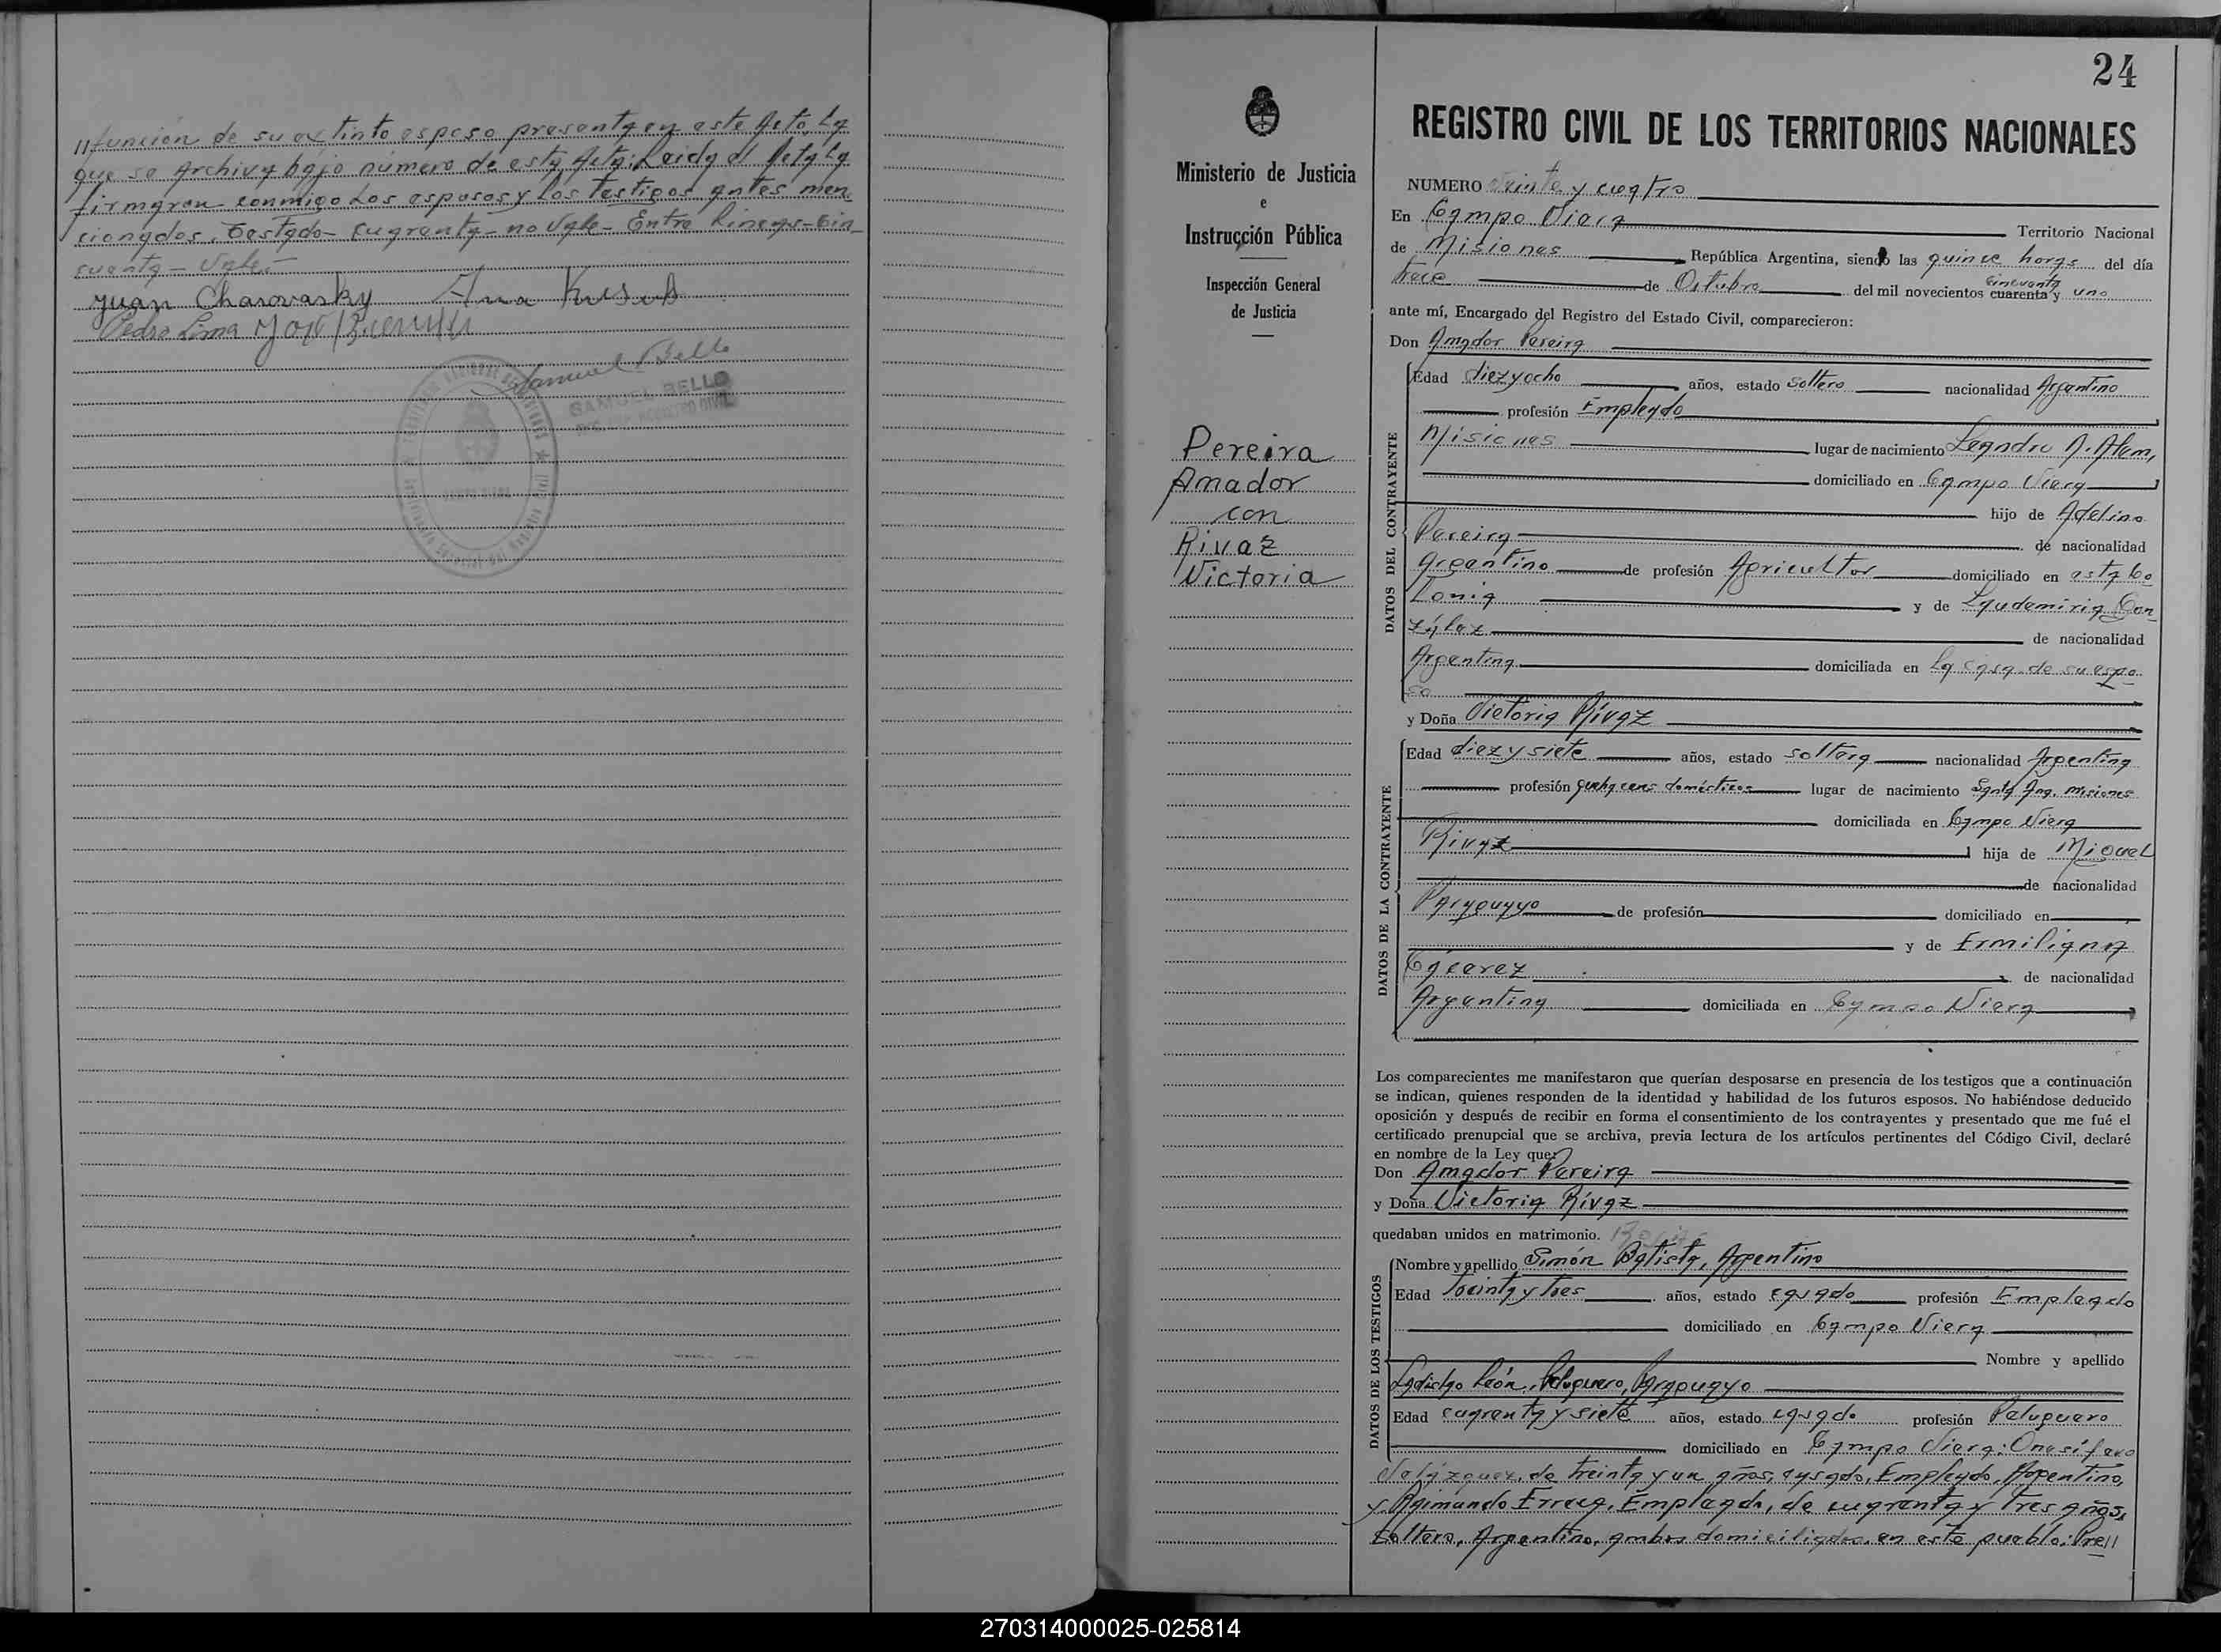 //funsión de su extinto esposo presenta en este Acto, la
que se Archiva bajo número de esta Acta; Leida el Acta la
firmaron conmigo los esposos y los testigos antes men
cionados. Testado- cuarenta- no vale- Entre lineas- cin_
cuenta- Vale.-
Juan Chasovasky Ana
Pedro Lima José
Samuel Bello
SAMUEL BELLO
24
REGISTRO CIVIL DE LOS TERRITORIOS NACIONALES
Ministerio de Justicia
e
Instrucción Pública
Inspección General
de Justicia
Pereira
Amador
con
Rivaz
Victoria
NUMERO Veinte y cuatro
En Campo Viera Territorio Nacional
de Misiones República Argentina, siendo las quince horas del día
trece de Octubre del mil novecientos cuarenta cincuenta y uno
ante mí, Encargado del Registro del Estado Civil, comparecieron:
Don Amador Pereira
DATOS DEL CONTRAYENTE
Edad diez y ocho años, estado soltero nacionalidad Argentino
profesión Empleado
Misiones lugar de nacimiento Leandro N. Alem,
domiciliado en Campo Viera
hijo de Adelino
Pereira de nacionalidad
Argentino de profesión Agricultor domiciliado en esta Co
lonia y de Laudemiria Gon
zález de nacionalidad
Argentina domiciliada en La casa de su espo
so
y Doña Victoria Rívaz
DATOS DE LA CONTRAYENTE
Edad diez y siete años, estado soltera nacionalidad Argentina
profesión quehaceres domésticos lugar de nacimiento Santa Ana, Misiones
domiciliada en Campo Viera
Rivaz hija de Miguel
de nacionalidad
Paraguayo de profesión domiciliado en
y de Ermiliana
Cácerez de nacionalidad
Argentina domiciliada en Campo Viera
Los comparecientes me manifestaron que querían desposarse en presencia de los testigos que a continuación
se indican, quienes responden de la identidad y habilidad de los futuros esposos. No habiéndose deducido
oposición y después de recibir en forma el consentimiento de los contrayentes y presentado que me fué el
certificado prenupcial que se archiva, previa lectura de los artículos pertinentes del Código Civil, declaré
en nombre de la Ley que:
Don Amador Pereira
y Doña Victoria Rívaz
quedaban unidos en matrimonio.
DATOS DE LOS TESTIGOS
Nombre y apellido Simón Batista, Argentino
Edad treinta y tres años, estado casado profesión Empleado
domiciliado en Campo Viera
Nombre y apellido
Ladislao León, Peluquero, Paraguayo
Edad cuarenta y siete años, estado casado profesión Peluquero
domiciliado en Campo Viera; Onesífero
Velázquez, de treinta y un años, casado, Empleado, Argentino,
y Raimundo Empleado, de cuarenta y tres años,
soltero, Argentino, ambos domiciliados en este pueblo; Pre//
270314000025-025814